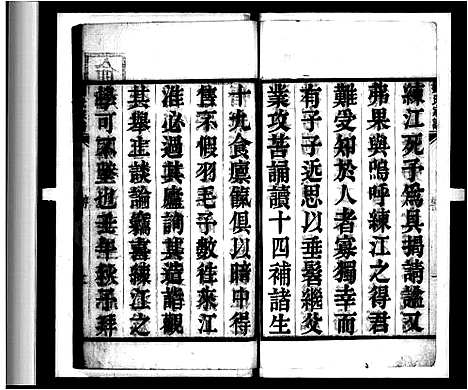 練江死予為具揭請謚又
弗果與嗚呼練江之得君
難受知於人者寡獨幸而
有子子遠思以垂髫繼父
業攻苦誦讀十四補諸生
十九食廩餼俱以暗中得
售不假羽毛予數往來江
淮必過其廬訪其造詣觀
其舉止談論竊喜練江之
可不墜也